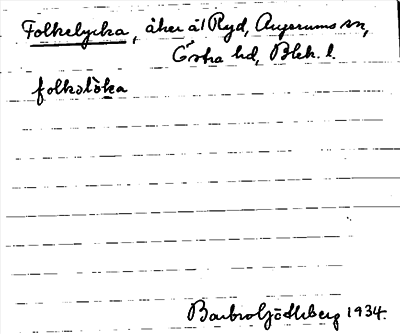 Folkelycka, åker å 1 Ryd, Augerums sn,
Östra hd, Blek. l.
folkəlöka
Barbro Gödeberg 1934.